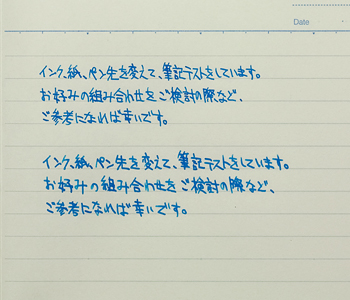 Date
インク、紙、ペン先を変えて、筆記テストをしています。
お好みの組み合わせをご検討の際など、
ご参考になれば幸いです。
インク、紙、ペン先を変えて、筆記テストをしています。
お好みの組み合わせをご検討の際など、
ご参考になれば幸いです。